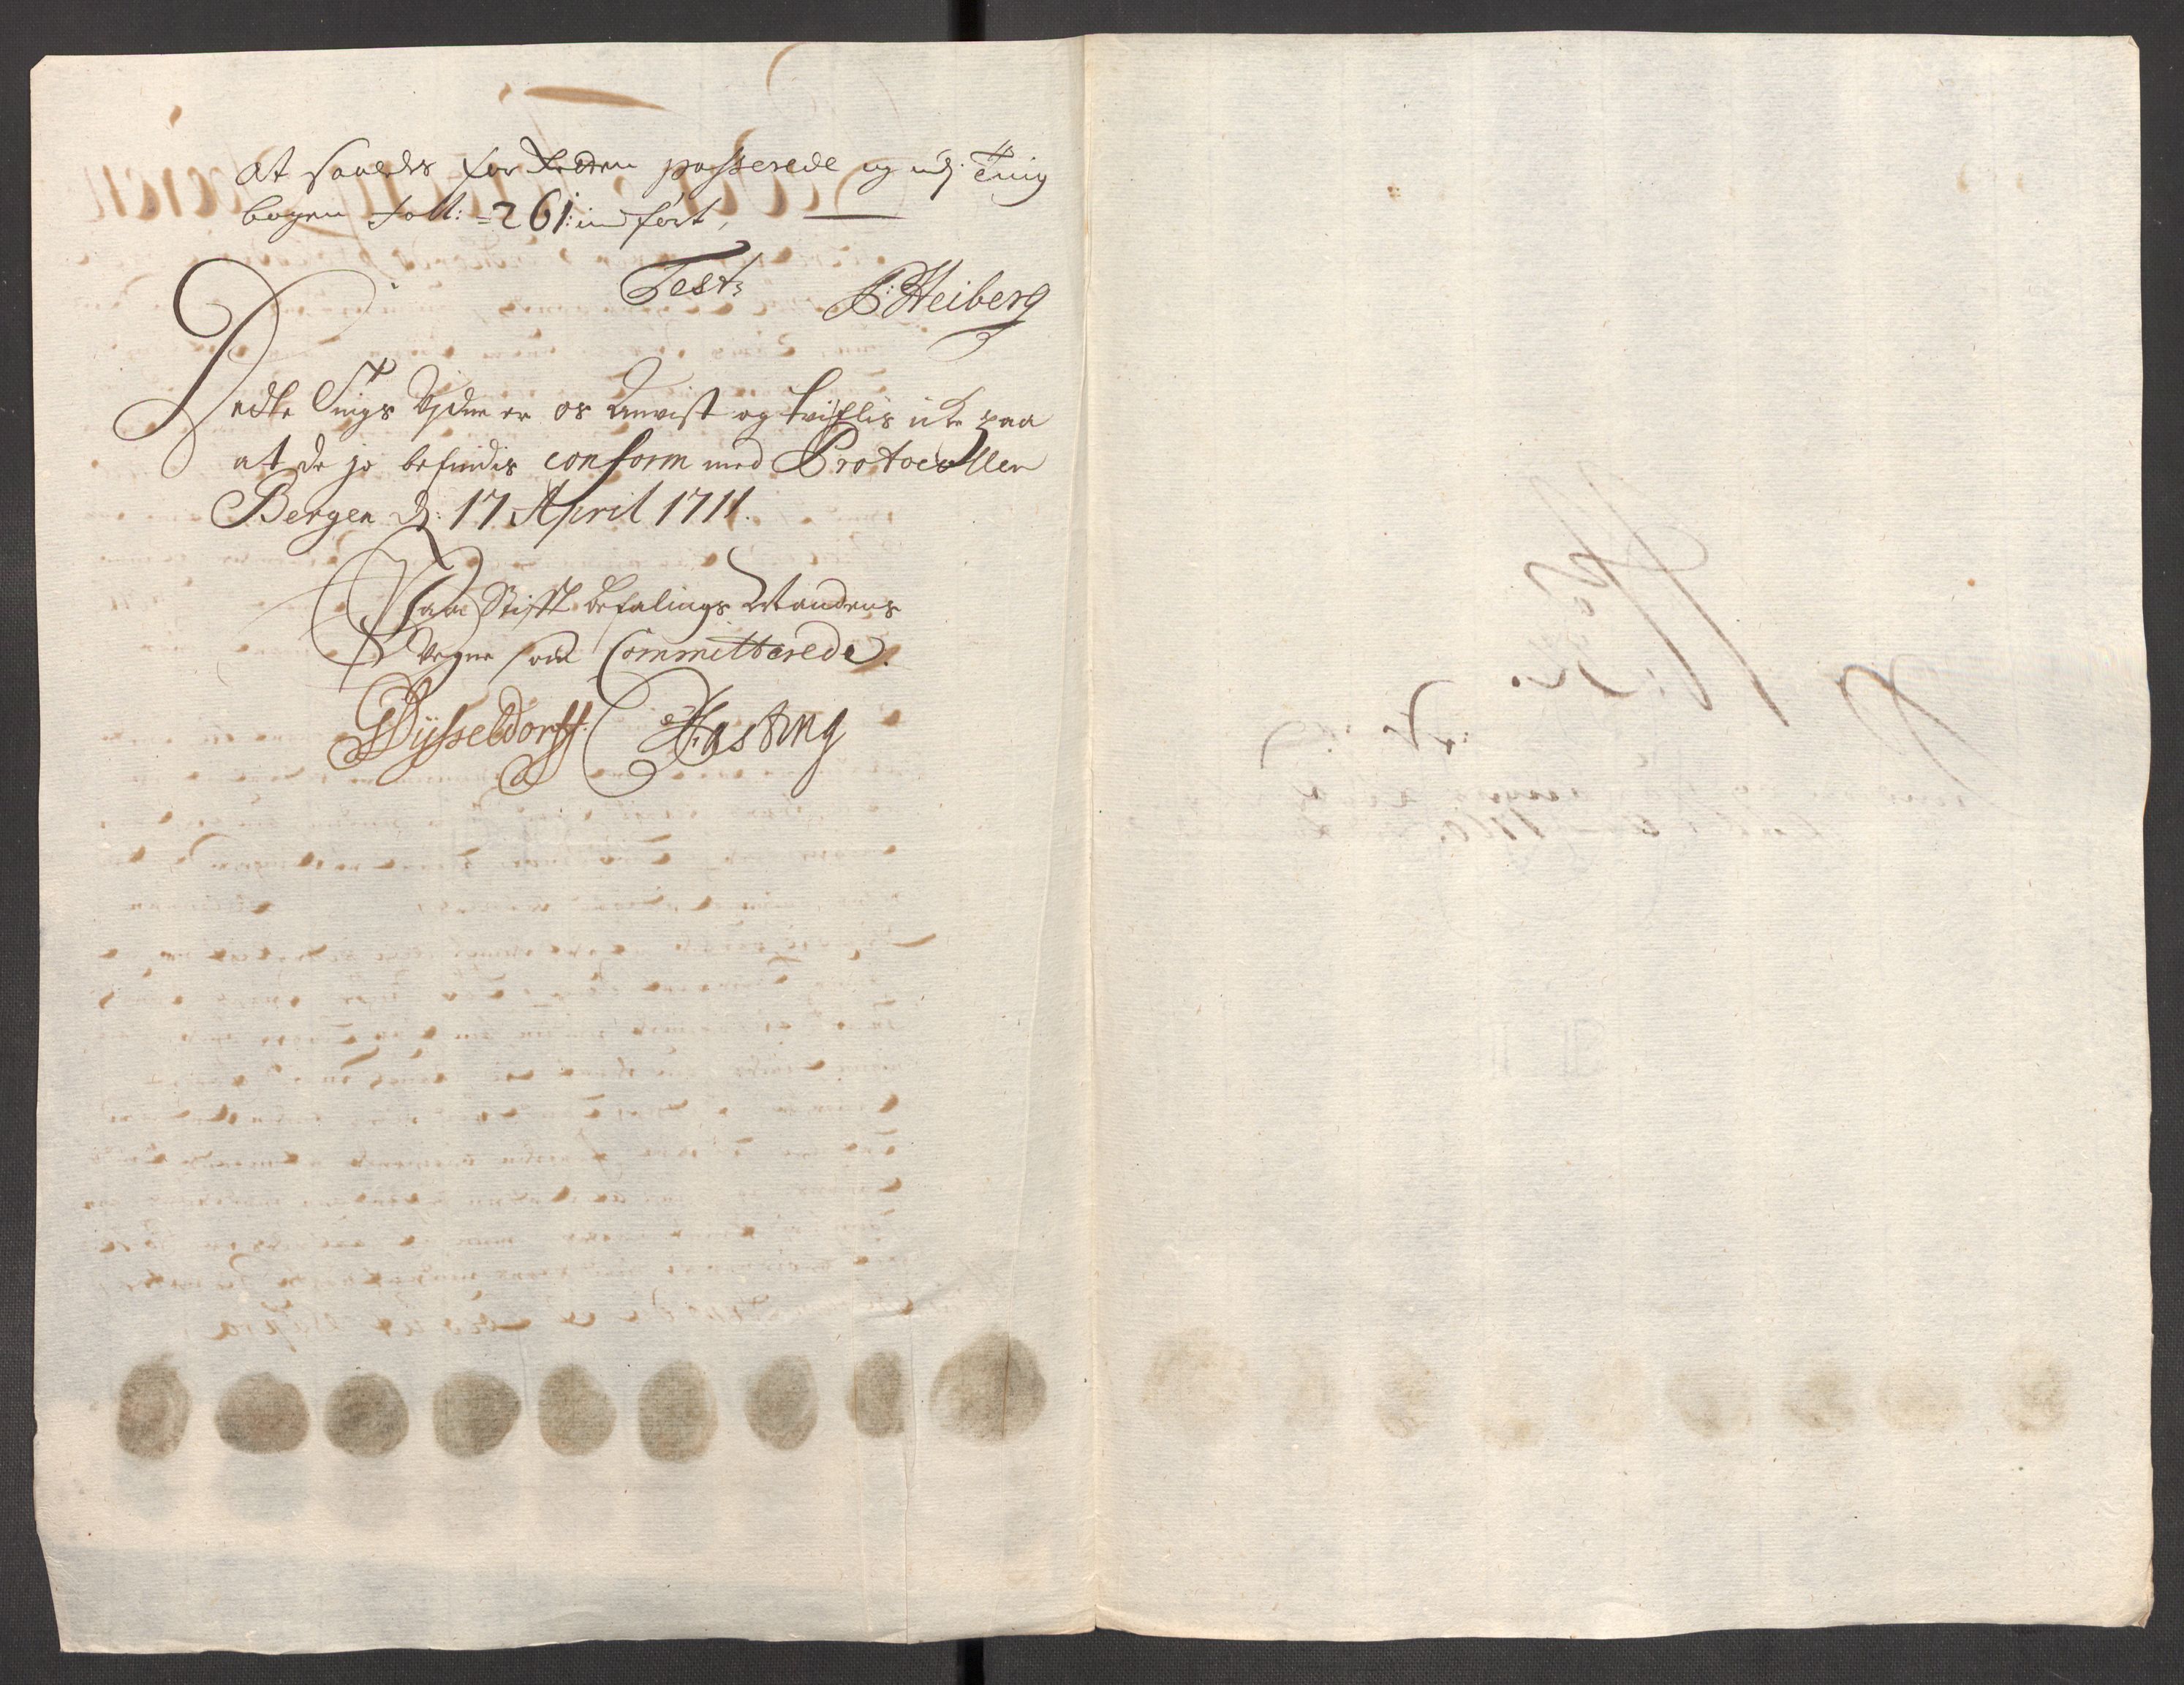 At saaledes for Retten passerede og udj Ting
bogen foll: 261: indført,
Test: P: Heiberg
Dette Tings Vidne er os Anvist og tvifflis icke paa
at de jo befindis conform med Protocollen
Bergen d: 17 April 1711.
Paa Stifft befalings Mandens
Vegne som Committerede.
Dÿsseldorff. Hasting